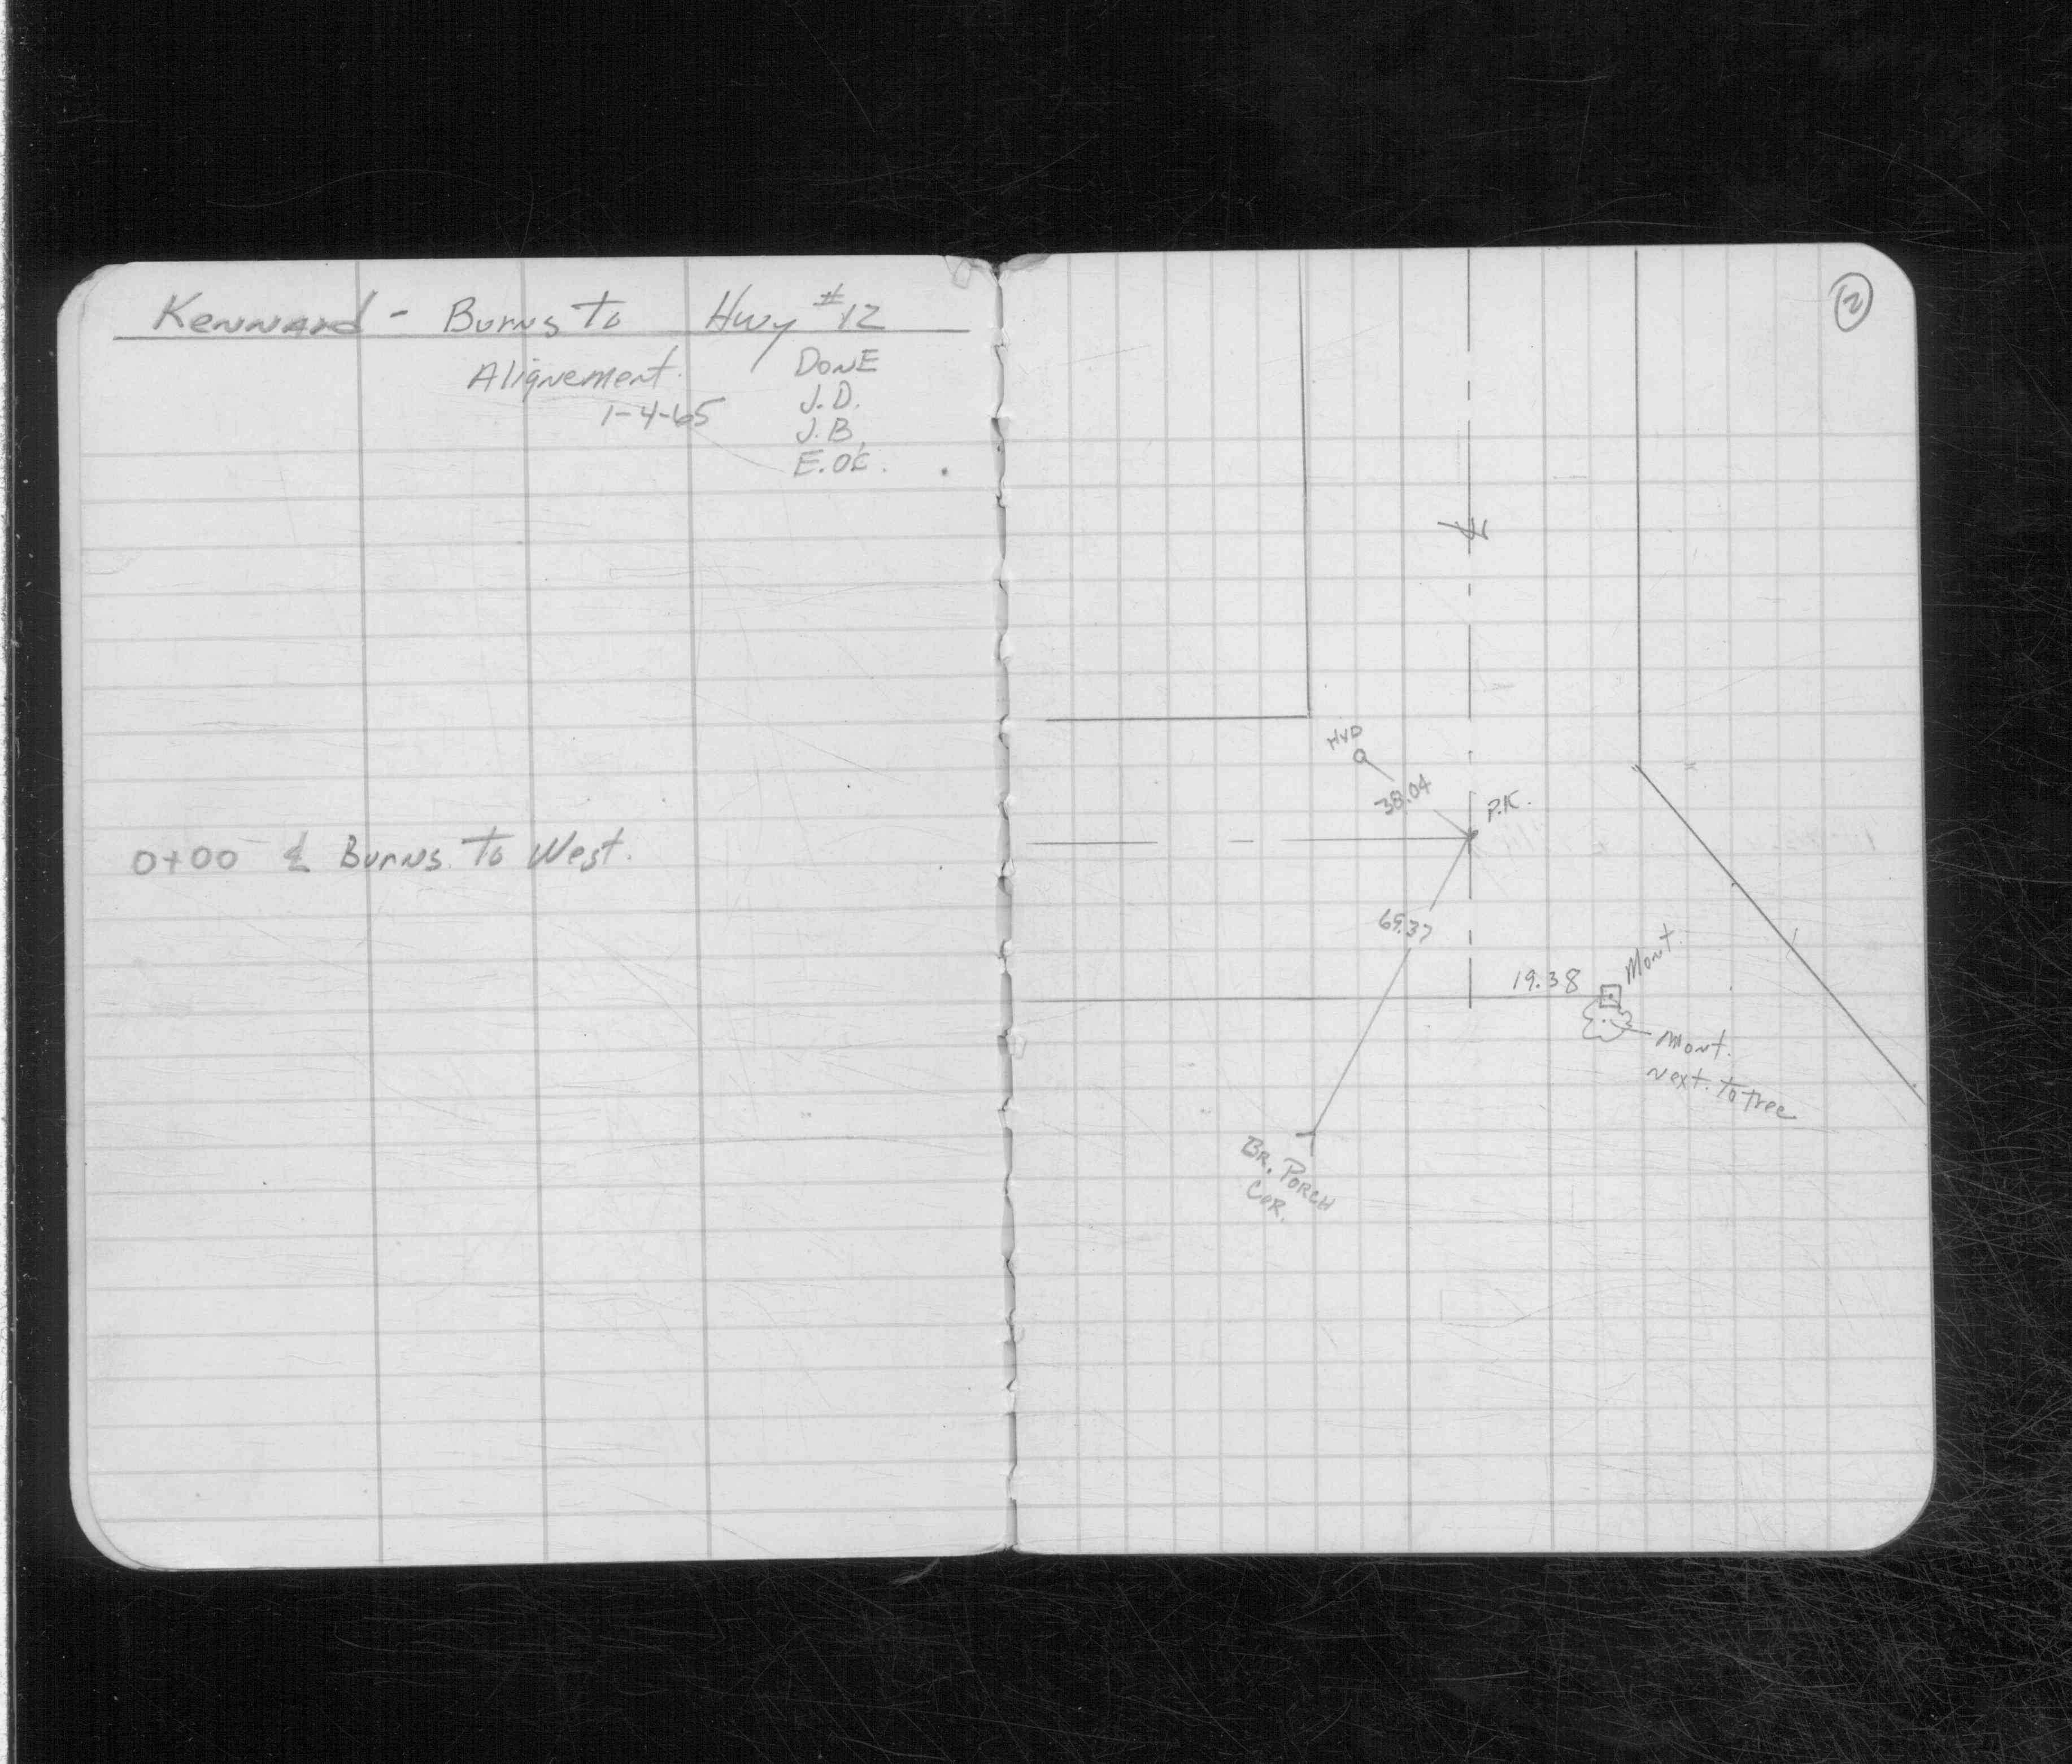 Kennard - Burns To Hwy #12
Alignement.
1-4-65
DONE
J.D.
J.B.
E.OE.
0+00 ℄ Burns To West.
2
HYD
38.04
P.K.
69.37
19.38
Mont.
Mont.
next. To Tree
BR. PORCH
COR.